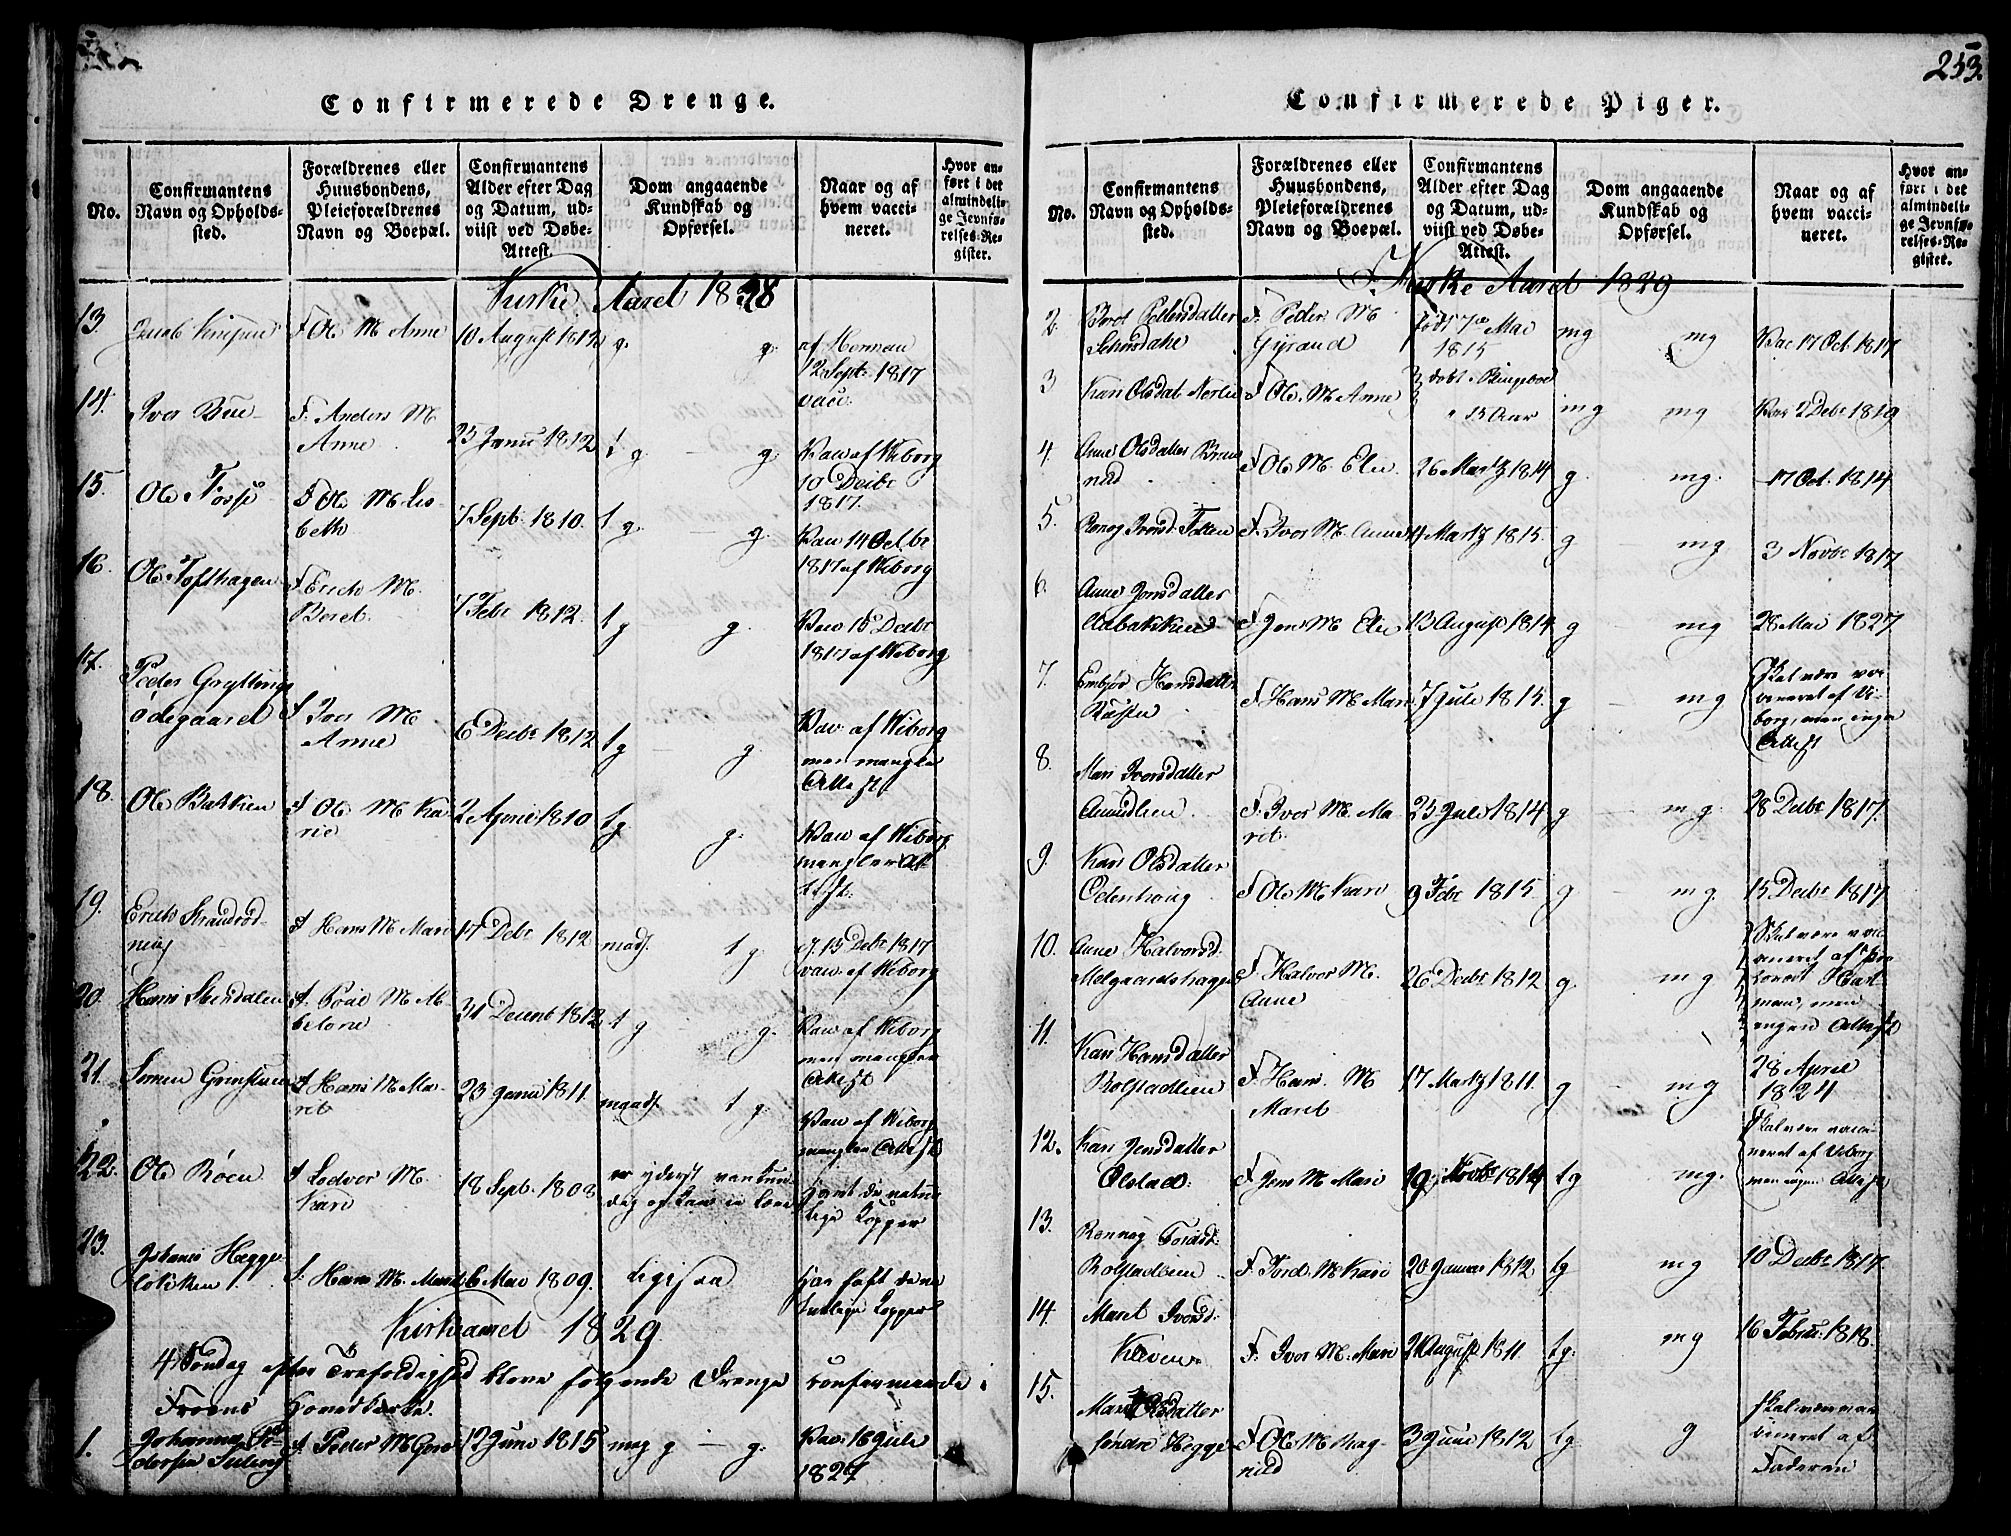 253.
Confirmerede Drenge.
No.
Confirmantens
Navn og Opholds-
sted.
Forældrenes eller
Huusbondens,
Pleieforældrenes
Navn og Boepæl.
Confirmantens
Alder efter Dag
og Datum, ud-
viist ved Døbe-
Attest.
Dom angaaende
Kundskab og
Opførsel.
Naar og af
hvem vacci-
neret.
Hvor an-
ført i det
almindeli-
ge Jevnfø-
relses-Re-
gister.
Kirke Aaret 1828
13.
F Ole M Anne
10 August 1812
g. g.
12 Sept. 1817
vacc.
14.
Iver Bue
F. Anders M
Anne
23 Janu 1812
t g. - g.
Vacc af Wiborg
10 Decbr
1817.
15.
Ole Fosse
F Ole M Lis-
beth
7 Sept. 1810.
t g. - g.
Vacc 14 Octbr
1817 af Wiborg
16.
Ole Tofthagen
F Erich M.
Beret.
7 Febr 1812.
t g g.
Vacc 15 Decbr
1817 af Wiborg
17.
Peder Gryttings
ødegaard
F Iver M
Anne
6 Decbr 1812
t g - g.
Vacc af Wiborg
men mangler
Attest
18.
Ole Bakken
F Ole M Ka-
rie
2 April 1810
t g. g.
Vacc af Wiborg
mangler At-
test.
19.
Erich Strandrød-
ning
F Hans M Mari
17 Debr 1812
maads. t g.
d. 15 Debr 1817
vacc. af Wiborg
20.
Hans Steisdalen
F. Poul M M-
belone
31 Decemb 1812
t g g.
Vacc af Wiborg
men mangler
Attest
21.
Simen
F Hans M Ma-
rit
23 Janu 1811.
maads. t g.
Vacc af Wiborg
mangler Attest
22.
Ole Røen
F Lodvor M.
Kari
18 Sept. 1808
er yderst vankun-
dig og
havt de natur-
lige Kopper
23.
Johannes Hegge-
løkken
F. Hans M. Marit
6 Mai 1809.
ligesaa
Har haft de na-
turlige Kopper
Kirkeaaret 1829.
4 Søndag efter Trefoldighed bleve følgende Drenge confirmerede i
Froens Hovedkirke.
1.
Johannes Pe-
dersen
F. Peder M Goro
12 Juni 1815
meg g - g.
Vacc. 16 Juli
1827
Confirmerede Piger.
No.
Confirmantens
Navn og Opholds-
sted.
Forældrenes eller
Huusbondens,
Pleieforældrenes
Navn og Boepæl.
Confirmantens
Alder efter Dag
og Datum, ud-
viist ved Døbe-
Attest.
Dom angaaende
Kundskab og
Opførsel.
Naar og af
hvem vacci-
neret.
Hvor an-
ført i det
almindeli-
ge Jevnfø-
relses-Re-
gister.
Kirke Aaret 1829
2.
Berit Pedersdatter
F. Peder M
født 7de Mai
1815
mg mg
Vac 17 Oct. 1817
3
Kari Olsdat
F Ole. M Anne
15 Aar
mg mg
Vac 2 Debr 1819
4.
Anne Olsdatter
F Ole M. Elie
26 Martz 1814
g mg.
17 Oct. 1814
5.
Ronnog Iversd:
F. Iver M. Anne
4 Martz 1815.
g mg
3 Novbr 1817
6.
Anne Jensdatter
Aabakken
F Jens M Elie
13 August 1814
g mg
28 Mai 1827
7.
Embjør Hansdatter
F Hans M Mari
7 Juli 1815.
g mg
Skal være vac-
cineret af Wi-
borg, men ingen
Attest
8.
Mari Iversdatter
F. Iver M. Ma-
rit.
25 Juli 1814
g mg.
28 Decbr 1817.
9.
Kari Olsdatter
Odenhoug
F Ole M Kari
9 Febr 1815
g mg.
15 Decbr 1817
10.
Anne Halvorsd:
Melgaardshagen
F. Halvor M.
Anne
26 Decbr 1812
g. mg
Skal være vac-
cineret af
men
ingen Attest
11.
Kari Hansdatter
Bolstadlien
F. Hans. M
Marit
17 Martz 1811.
g mg
28 April
1824
12.
Kari Jensdatter
Olstad.
F. Jens M Mari
19 Novbr 1814
tg mg.
Skal være vacci-
neret af Viborg
men ingen Attest
13.
Ronnog Tordsd:
Bolstadlien
F. Tord. M Kari
20 Januar 1812
tg mg
10 Decbr 1817.
14.
Marit Iversd:
Kleven
F. Iver M. Mari
21 August 1811
tg. mg
16 Febru: 1818.
15.
Mari Olsdatter
søndre Hegge
F. Ole M Rag-
nild
3 Juni 1812
tg. g
skal være vac-
cineret af
Faderen